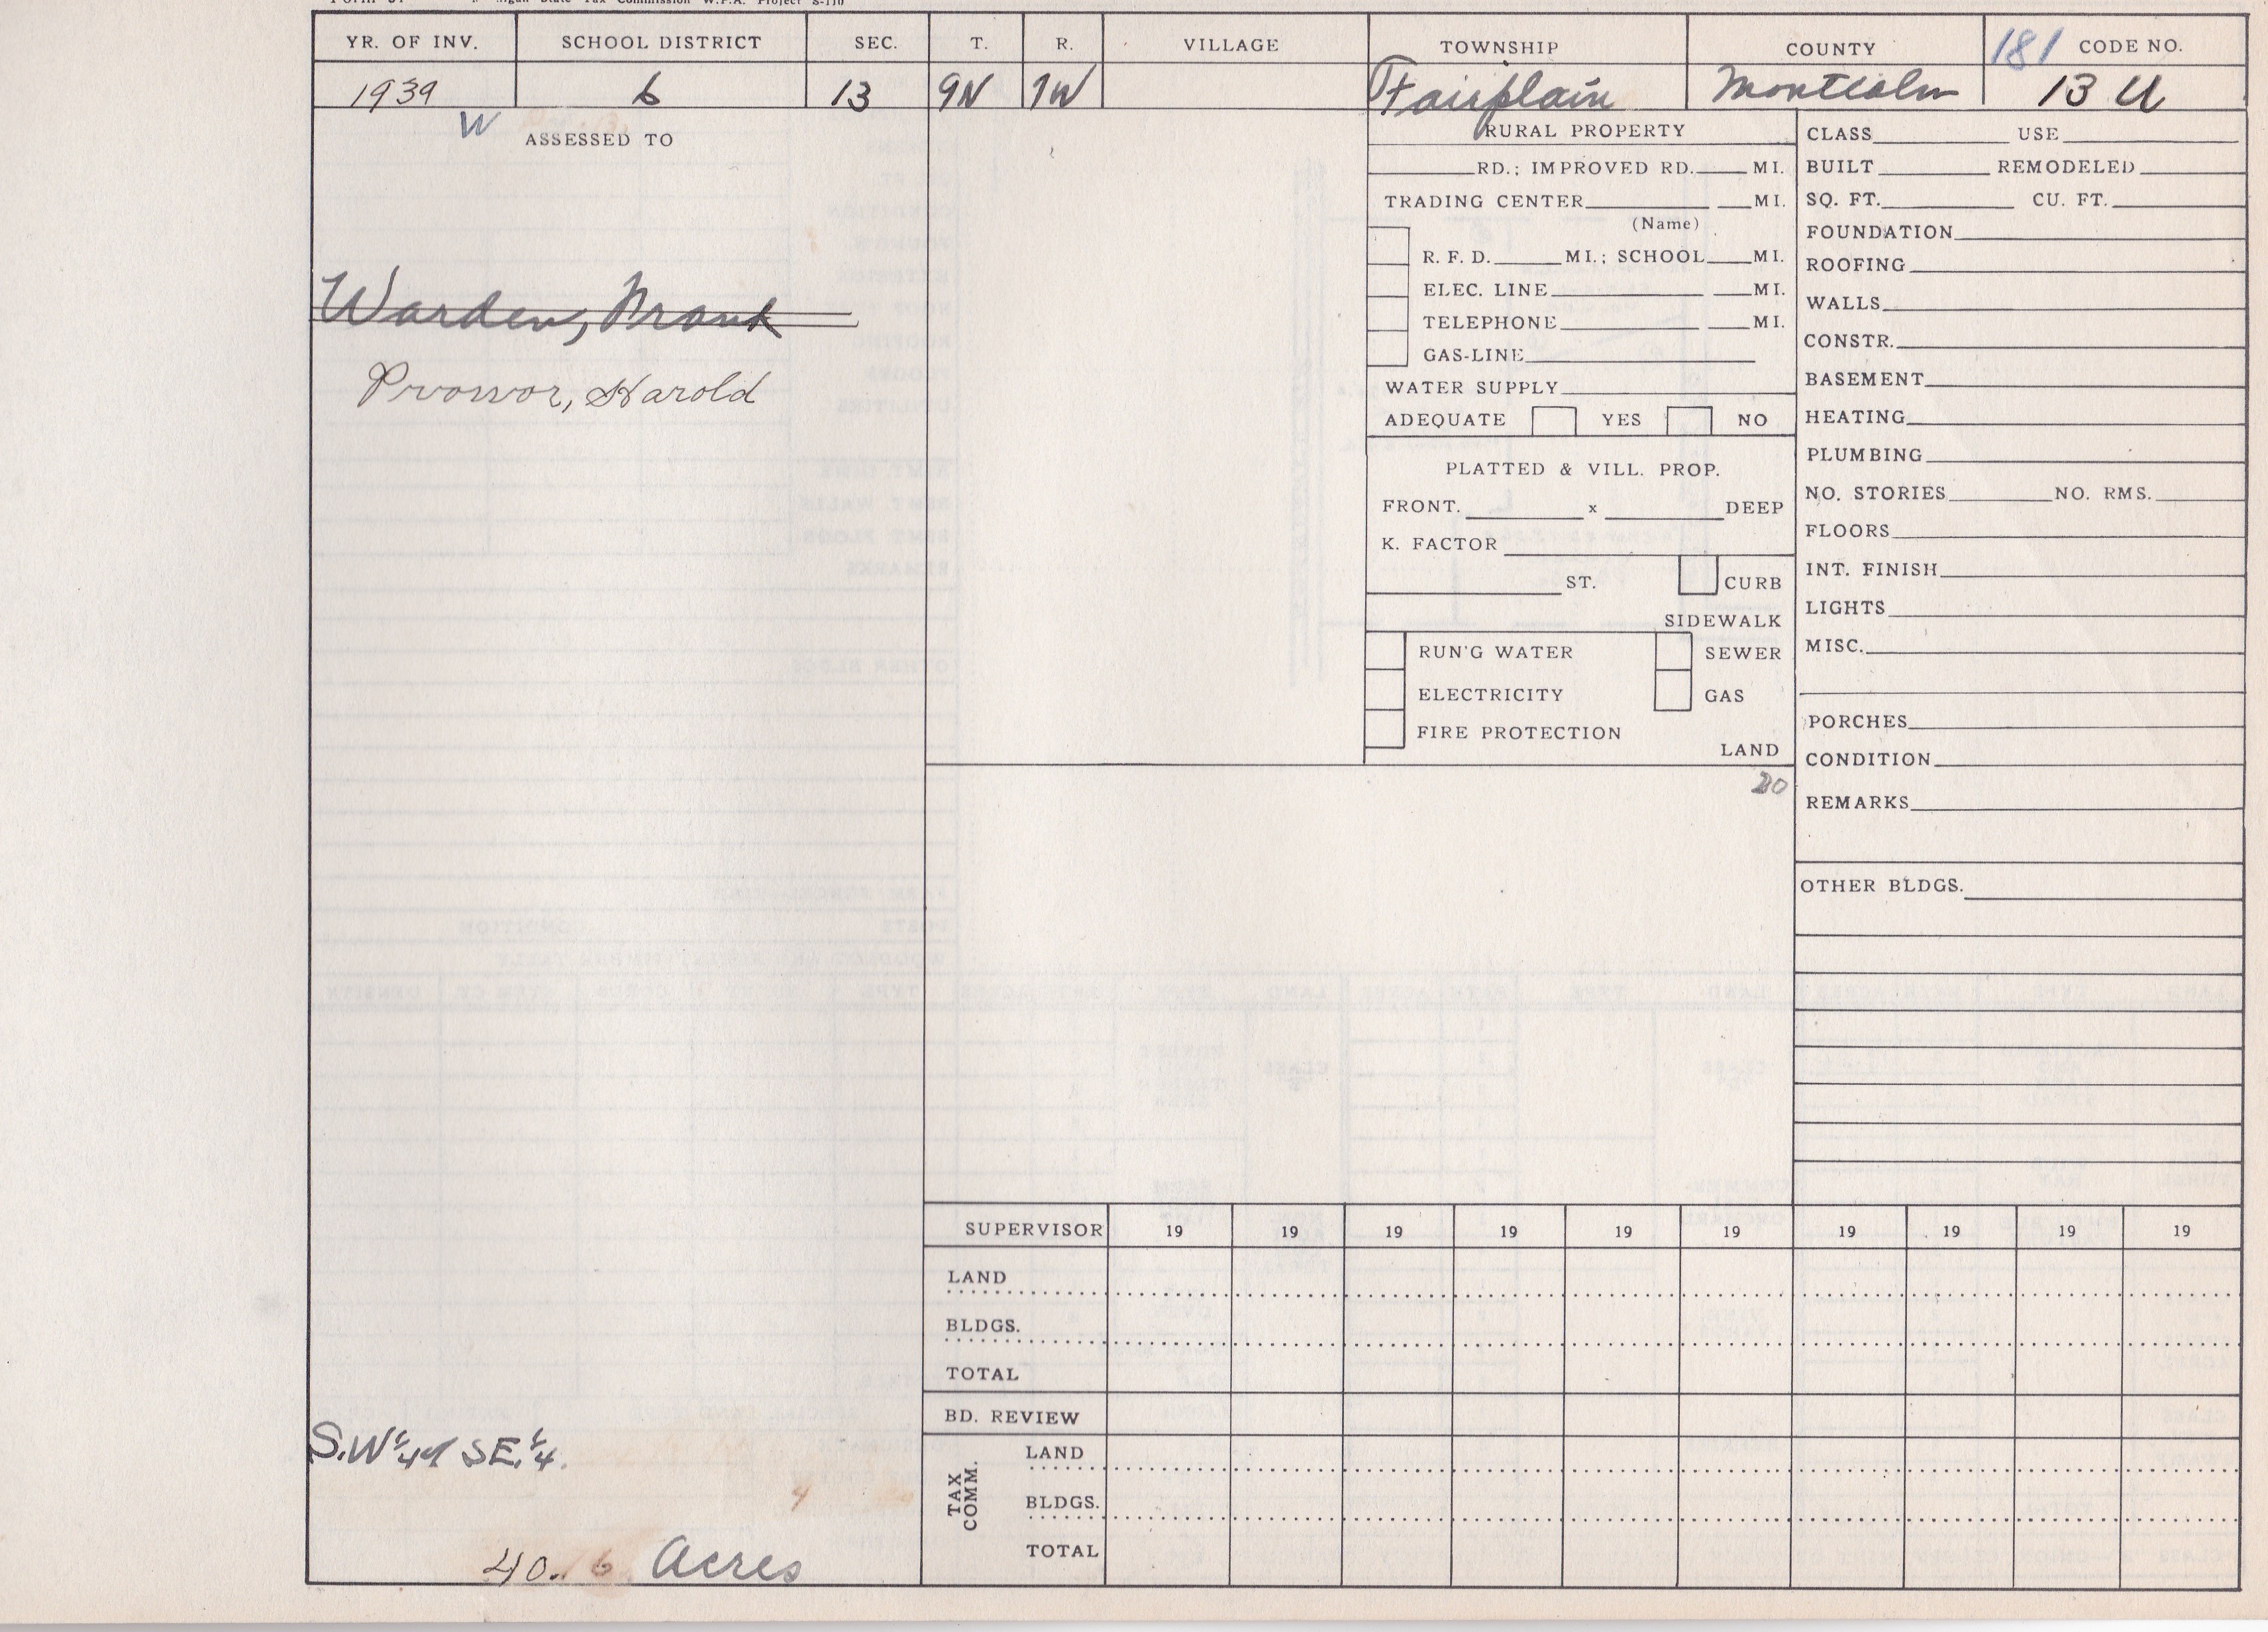 Michigan State Tax Commission W.P.A. Project S-110
YR. OF INV. SCHOOL DISTRICT SEC. T. R. VILLAGE TOWNSHIP COUNTY 181 CODE NO.
1939 6 13 9N 7W Fairplain Montcalm 13 U
W
ASSESSED TO
Warden,
Harold
S.W 1/4 of SE. 1/4.
4
40. 6 Acres
RURAL PROPERTY
RD.; IMPROVED RD. MI.
TRADING CENTER MI.
(Name)
R. F. D. MI.; SCHOOL MI.
ELEC. LINE MI.
TELEPHONE MI.
GAS-LINE
WATER SUPPLY
ADEQUATE YES NO
PLATTED & VILL. PROP.
FRONT. x DEEP
K. FACTOR
ST. CURB
SIDEWALK
RUN'G WATER SEWER
ELECTRICITY GAS
FIRE PROTECTION
LAND
20
CLASS USE
BUILT REMODELED
SQ. FT. CU. FT.
FOUNDATION
ROOFING
WALLS
CONSTR.
BASEMENT
HEATING
PLUMBING
NO. STORIES NO. RMS.
FLOORS
INT. FINISH
LIGHTS
MISC.
PORCHES
CONDITION
REMARKS
OTHER BLDGS.
SUPERVISOR 19 19 19 19 19 19 19 19 19 19
LAND
BLDGS.
TOTAL
BD. REVIEW
TAX COMM.
LAND
BLDGS.
TOTAL